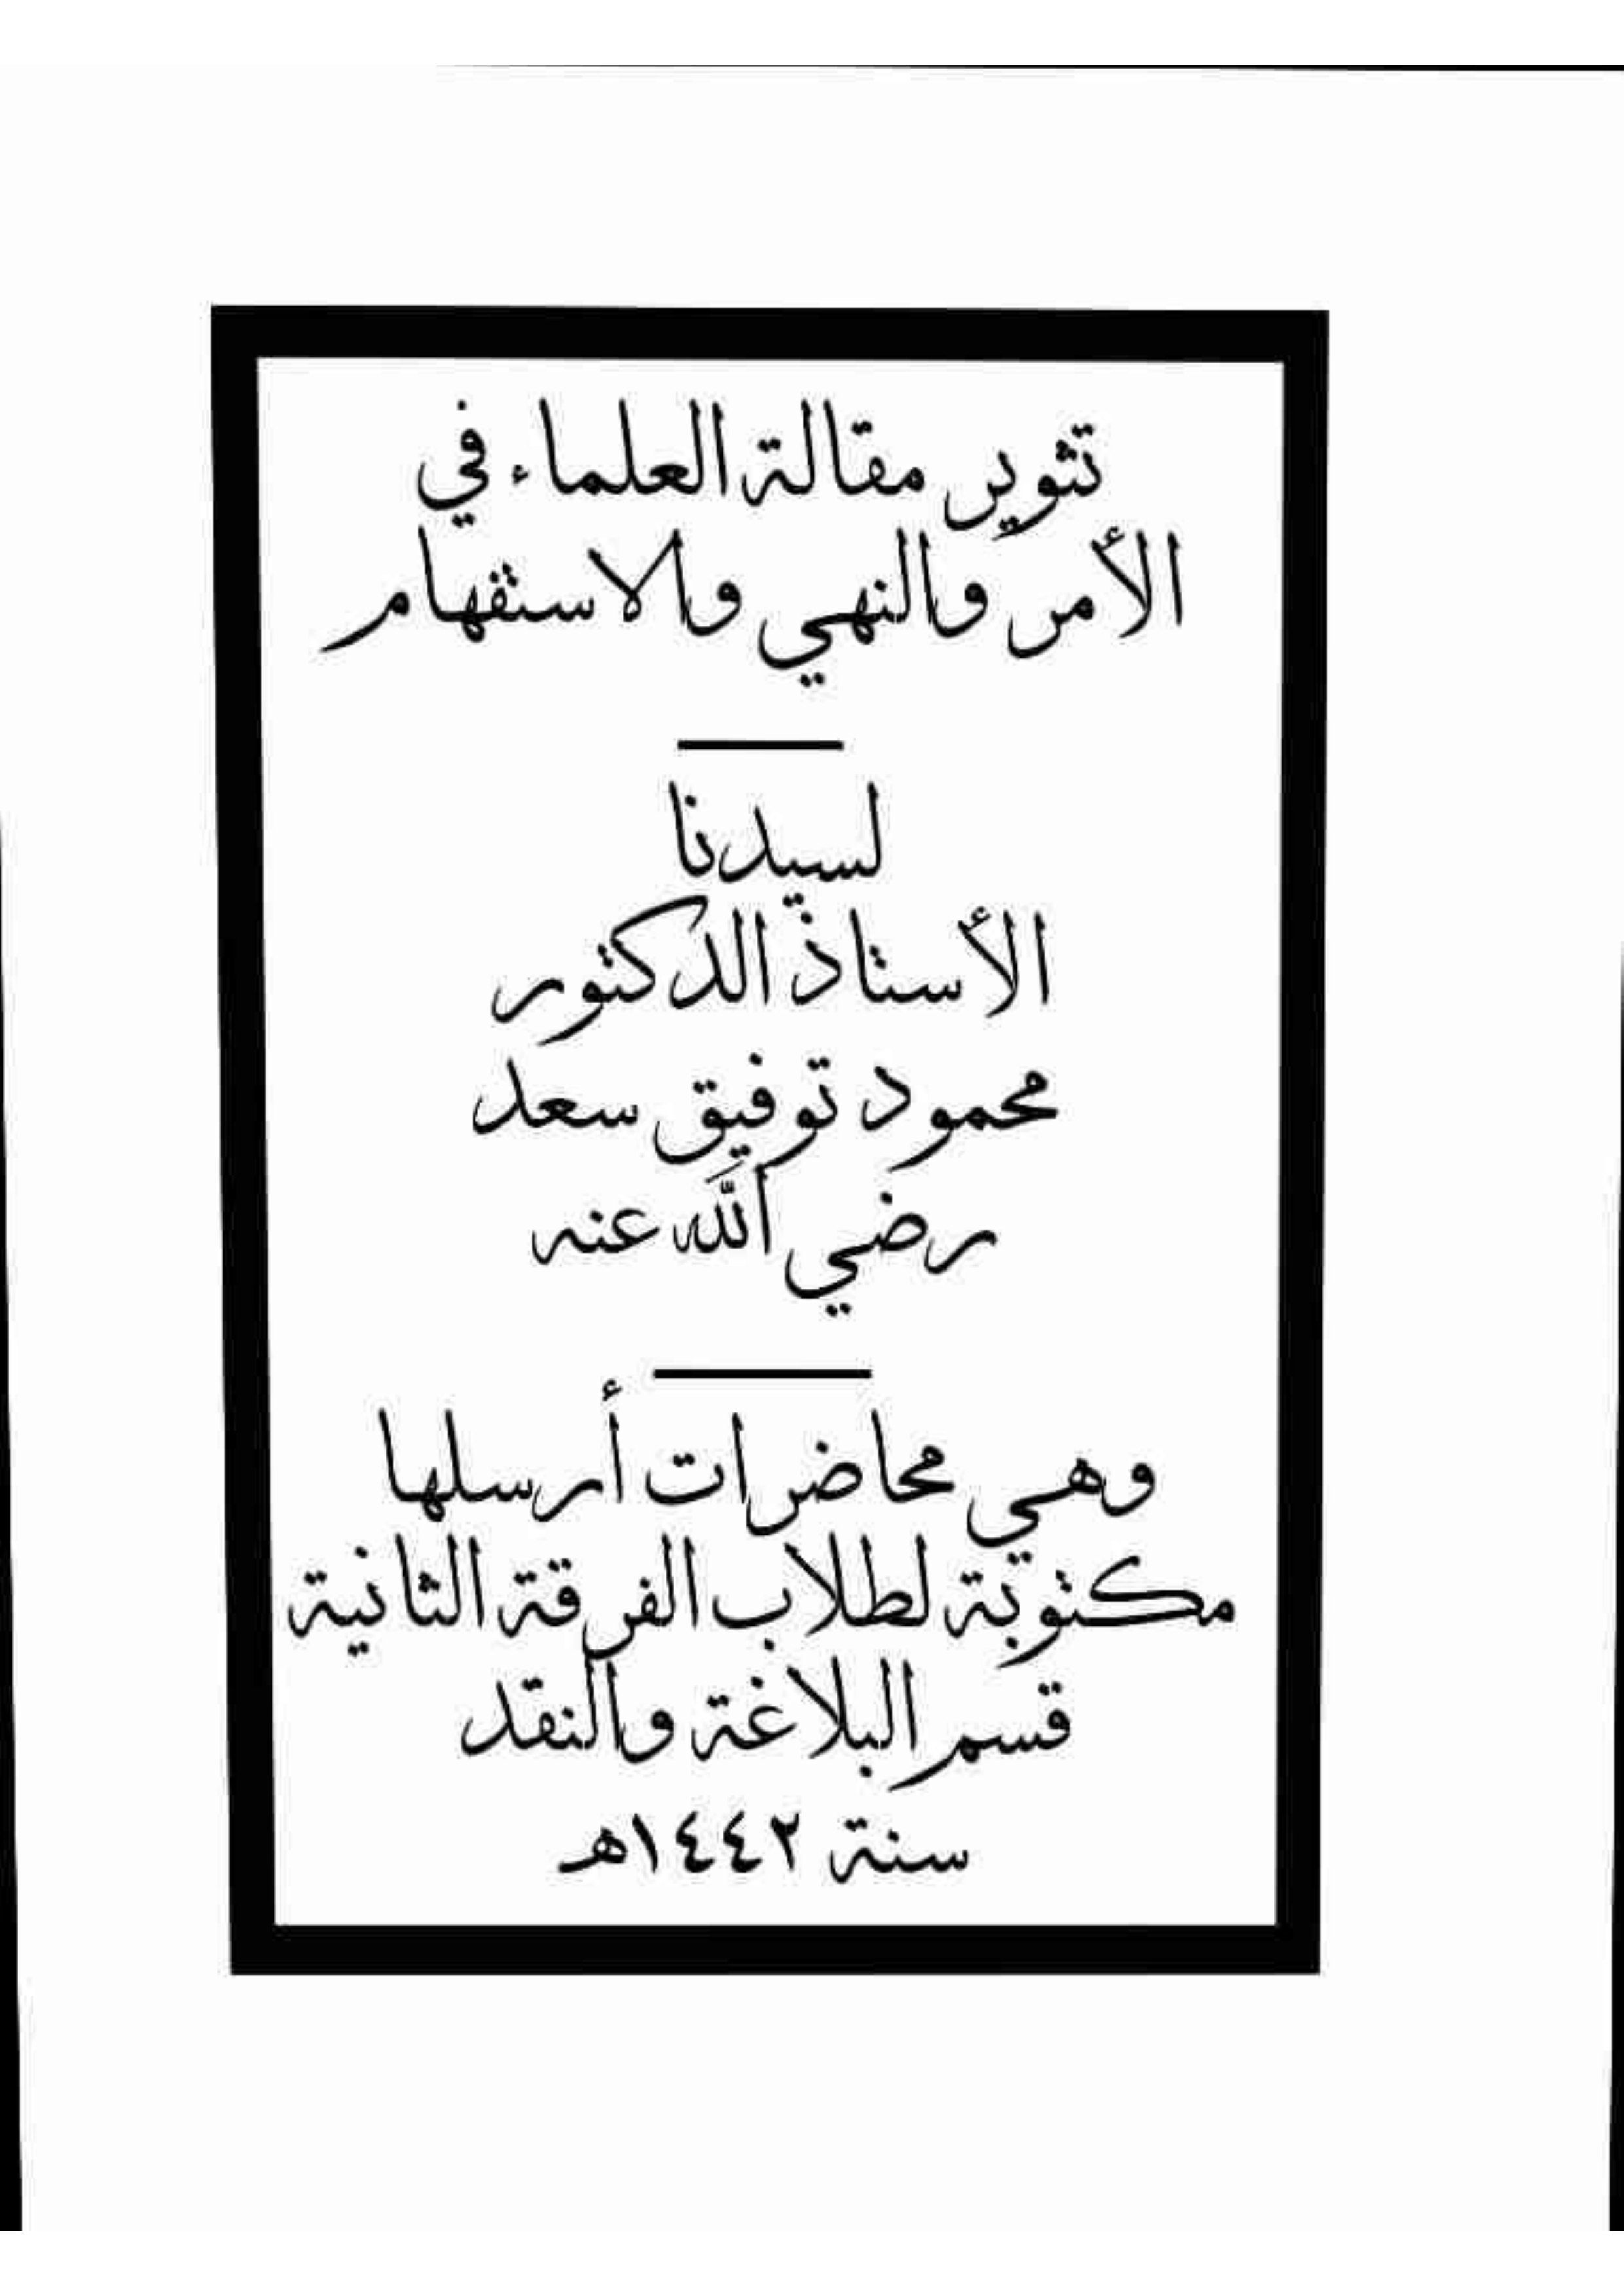 تثوير مقالة العلماء في
الأمر والنهي والاستفهام
لسيدنا
الأستاذ الدكتور
محمود توفيق سعد
رضي الله عنه
وهي محاضرات أرسلها
مكتوبة لطلاب الفرقة الثانية
قسم البلاغة والنقد
سنة ١٤٤٢هـ